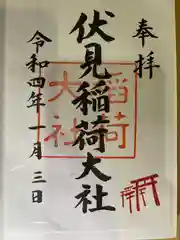 奉拝
伏見稲荷大社
令和四年一月三日
稲荷
大社